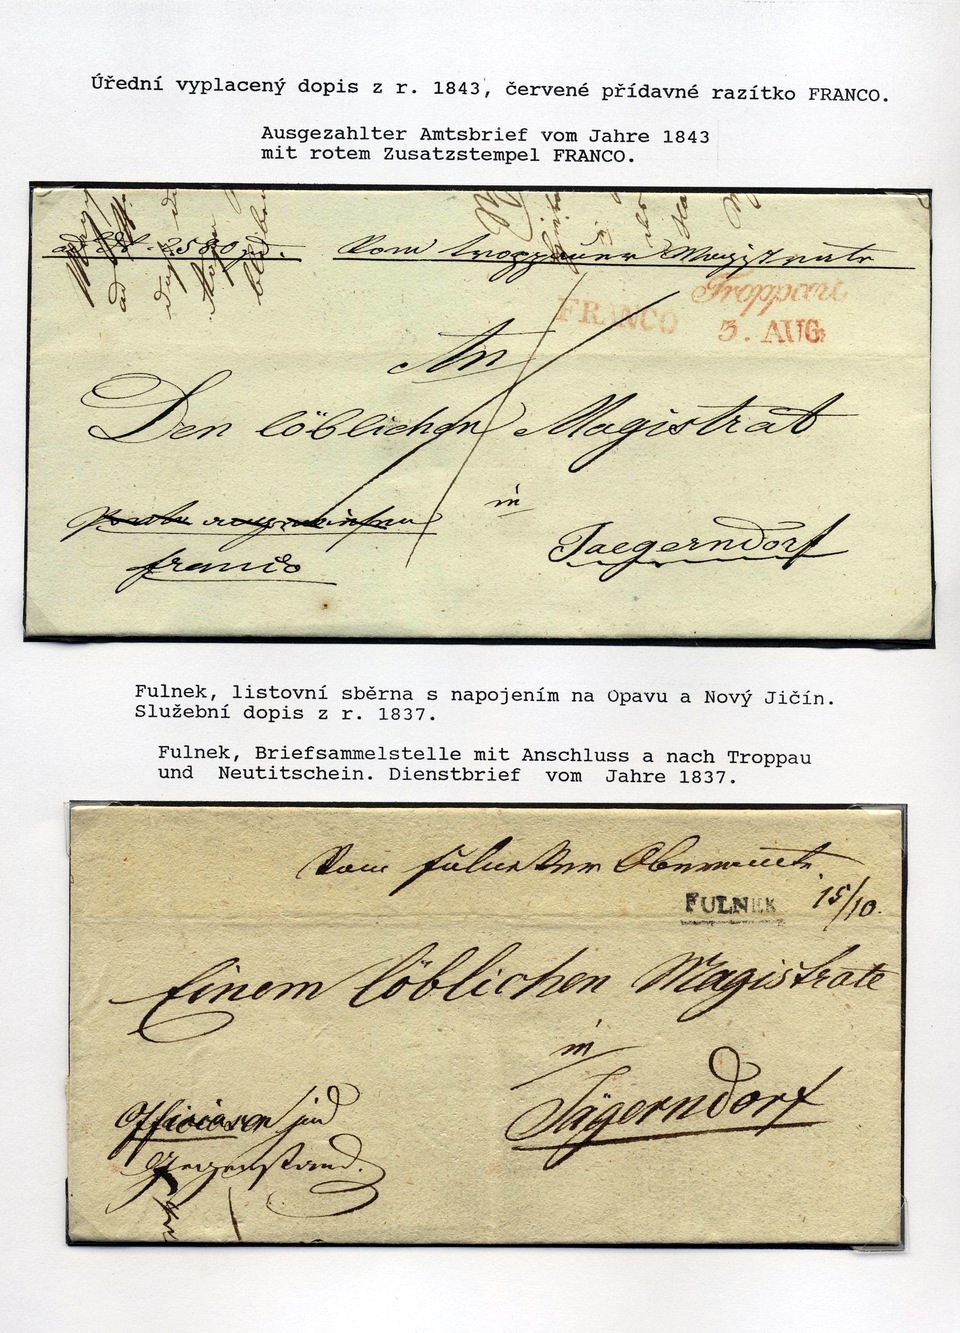 Úřední vyplacený dopis z r. 1843, červené přídavné razítko FRANCO.
Ausgezahlter Amtsbrief vom Jahre 1843
mit rotem Zusatzstempel FRANCO.
Vom Troppauer Magistrate
Troppau
FRANCO
5. AUG.
An
Den löblichen Magistrat
in
Jaegerndorf
franco
Fulnek, listovní sběrna s napojením na Opavu a Nový Jičín.
Služební dopis z r. 1837.
Fulnek, Briefsammelstelle mit Anschluss a nach Troppau
und Neutitschein. Dienstbrief vom Jahre 1837.
Vom Fulneker Oberamte
FULNEK
15/10.
Einem löblichen Magistrate
in
Jägerndorf
Gegenstand.